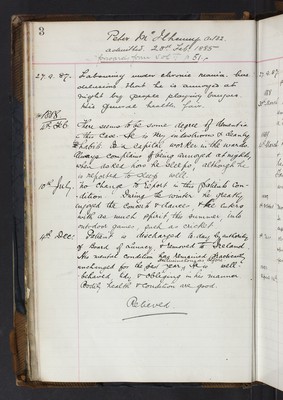 8
Peter McIlhenny aet 32
admitted 28th Feby 1885
forwards from Vol
27.9.87. Labouring under chronic mania. Has
delusions that he is annoyed at
night by people playing
His general health, fair.
1888
4th Feb. There seems to be some degree of dementia
in this case. He is very industrious & cleanly
in habit. Is a capital worker in the wards.
Always complains of being annoyed at nights
when asked how he sleeps, although he
is reported to sleep well.
10th July. No change to report in this patients con-
dition. During the winter he greatly
enjoyed the concerts & dances & he enters
with as much spirit, the summer, into
out-door games, such as cricket.
4th Dec: Patient is discharged to-day by authority
of Board of Lunacy & removed to Ireland.
His mental condition has remained practically
unchanged for the past year. He is well-
behaved tidy & obliging in his manner
Bodily health & condition are good.
Relieved